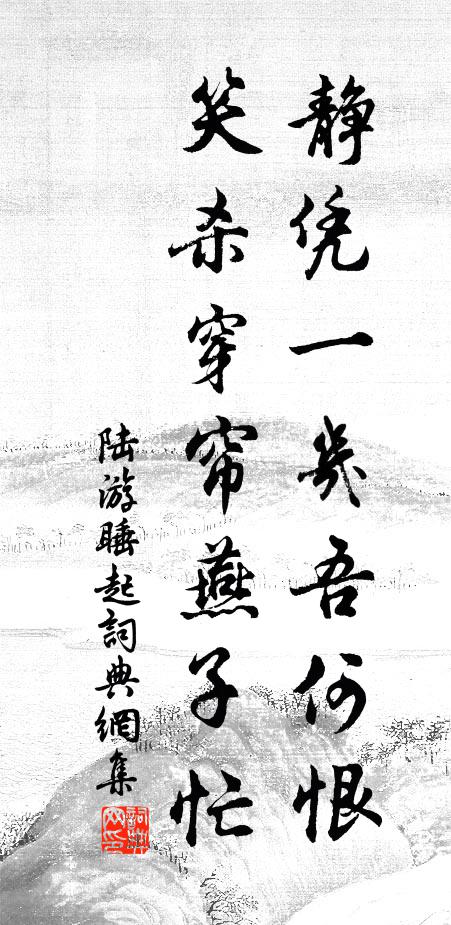 静凭一幾吾何恨
笑杀穿帘燕子忙
陆游睡起詞典網集